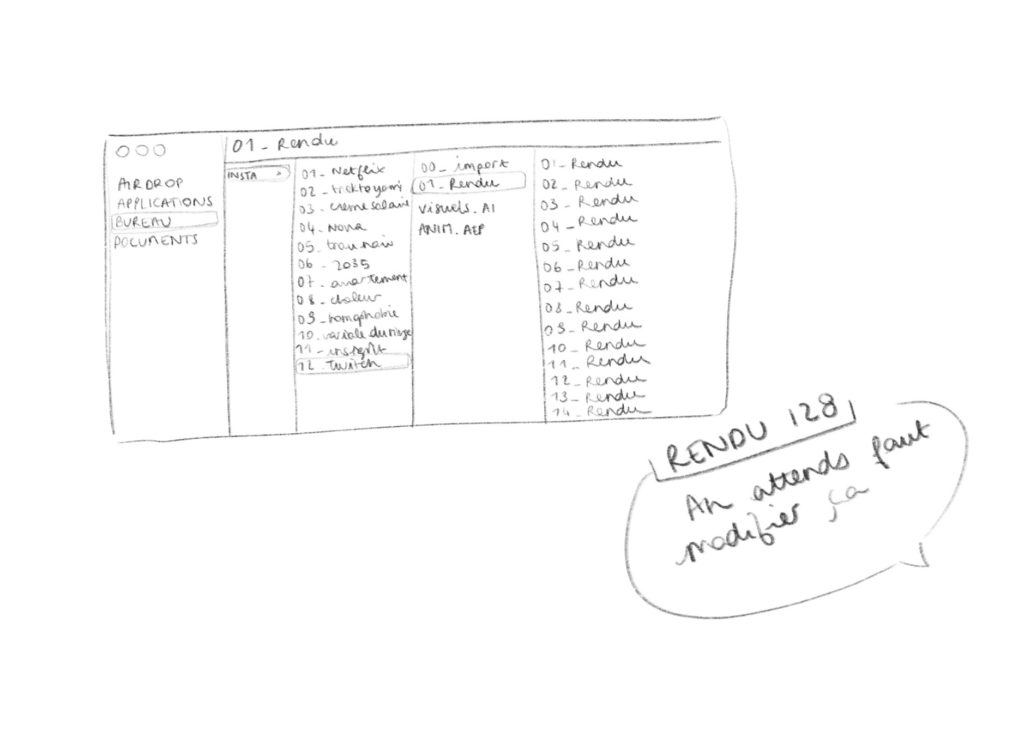 01_ Rendu
AIRDROP
APPLICATIONS
BUREAU
DOCUMENTS
INSTA >
01_ Netflix
02_ ticktoyomi
03_ crèmesolaire
04_ Nova
05_
06_ 2035
07_
08_ chaleur
09_ homophobie
10_ variole du singe
11_ insight
12_ Twitch
00_ import
01_ Rendu
VISUELS.AI
ANIM.AEP
01_ Rendu
02_ Rendu
03_ Rendu
04_ Rendu
05_ Rendu
06_ Rendu
07_ Rendu
08_ Rendu
09_ Rendu
10_ Rendu
11_ Rendu
12_ Rendu
13_ Rendu
14_ Rendu
RENDU 128
Ah attends faut
modifier ça